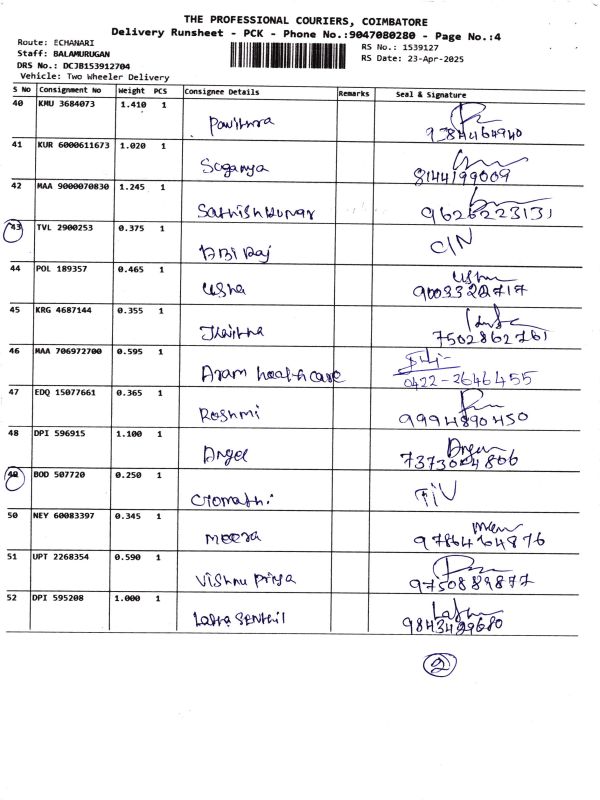 THE PROFESSIONAL COURIERS, COIMBATORE
Delivery Runsheet - PCK - Phone No.:9047080280 - Page No.:4
Route: ECHANARI
RS No.: 1539127
Staff: BALAMURUGAN
RS Date: 23-Apr-2025
DRS No.: DCJB153912704
Vehicle: Two Wheeler Delivery
S No Consignment No Weight PCS Consignee Details Remarks Seal & Signature
40 KMU 3684073 1.410 1
Pavithra 9384464940
41 KUR 6000611673 1.020 1
8144199009
42 MAA 9000070830 1.245 1
Sathish kumar 9626223131
43 TVL 2900253 0.375 1
ABi Raj C/N
44 POL 189357 0.465 1
Usha
Usha 9003322717
45 KRG 4687144 0.355 1
7502862761
46 MAA 706972700 0.595 1
Aram health care 0422-2646455
47 EDQ 15077661 0.365 1
Rashmi 9994890450
48 DPI 596915 1.100 1
Angel
7373004806
49 BOD 507720 0.250 1
Gomathi
50 NEY 60083397 0.345 1
Meera 9786464876
51 UPT 2268354 0.590 1
Vishnu Priya 9750889877
52 DPI 595208 1.000 1
Latha Senthil 9843499680
2